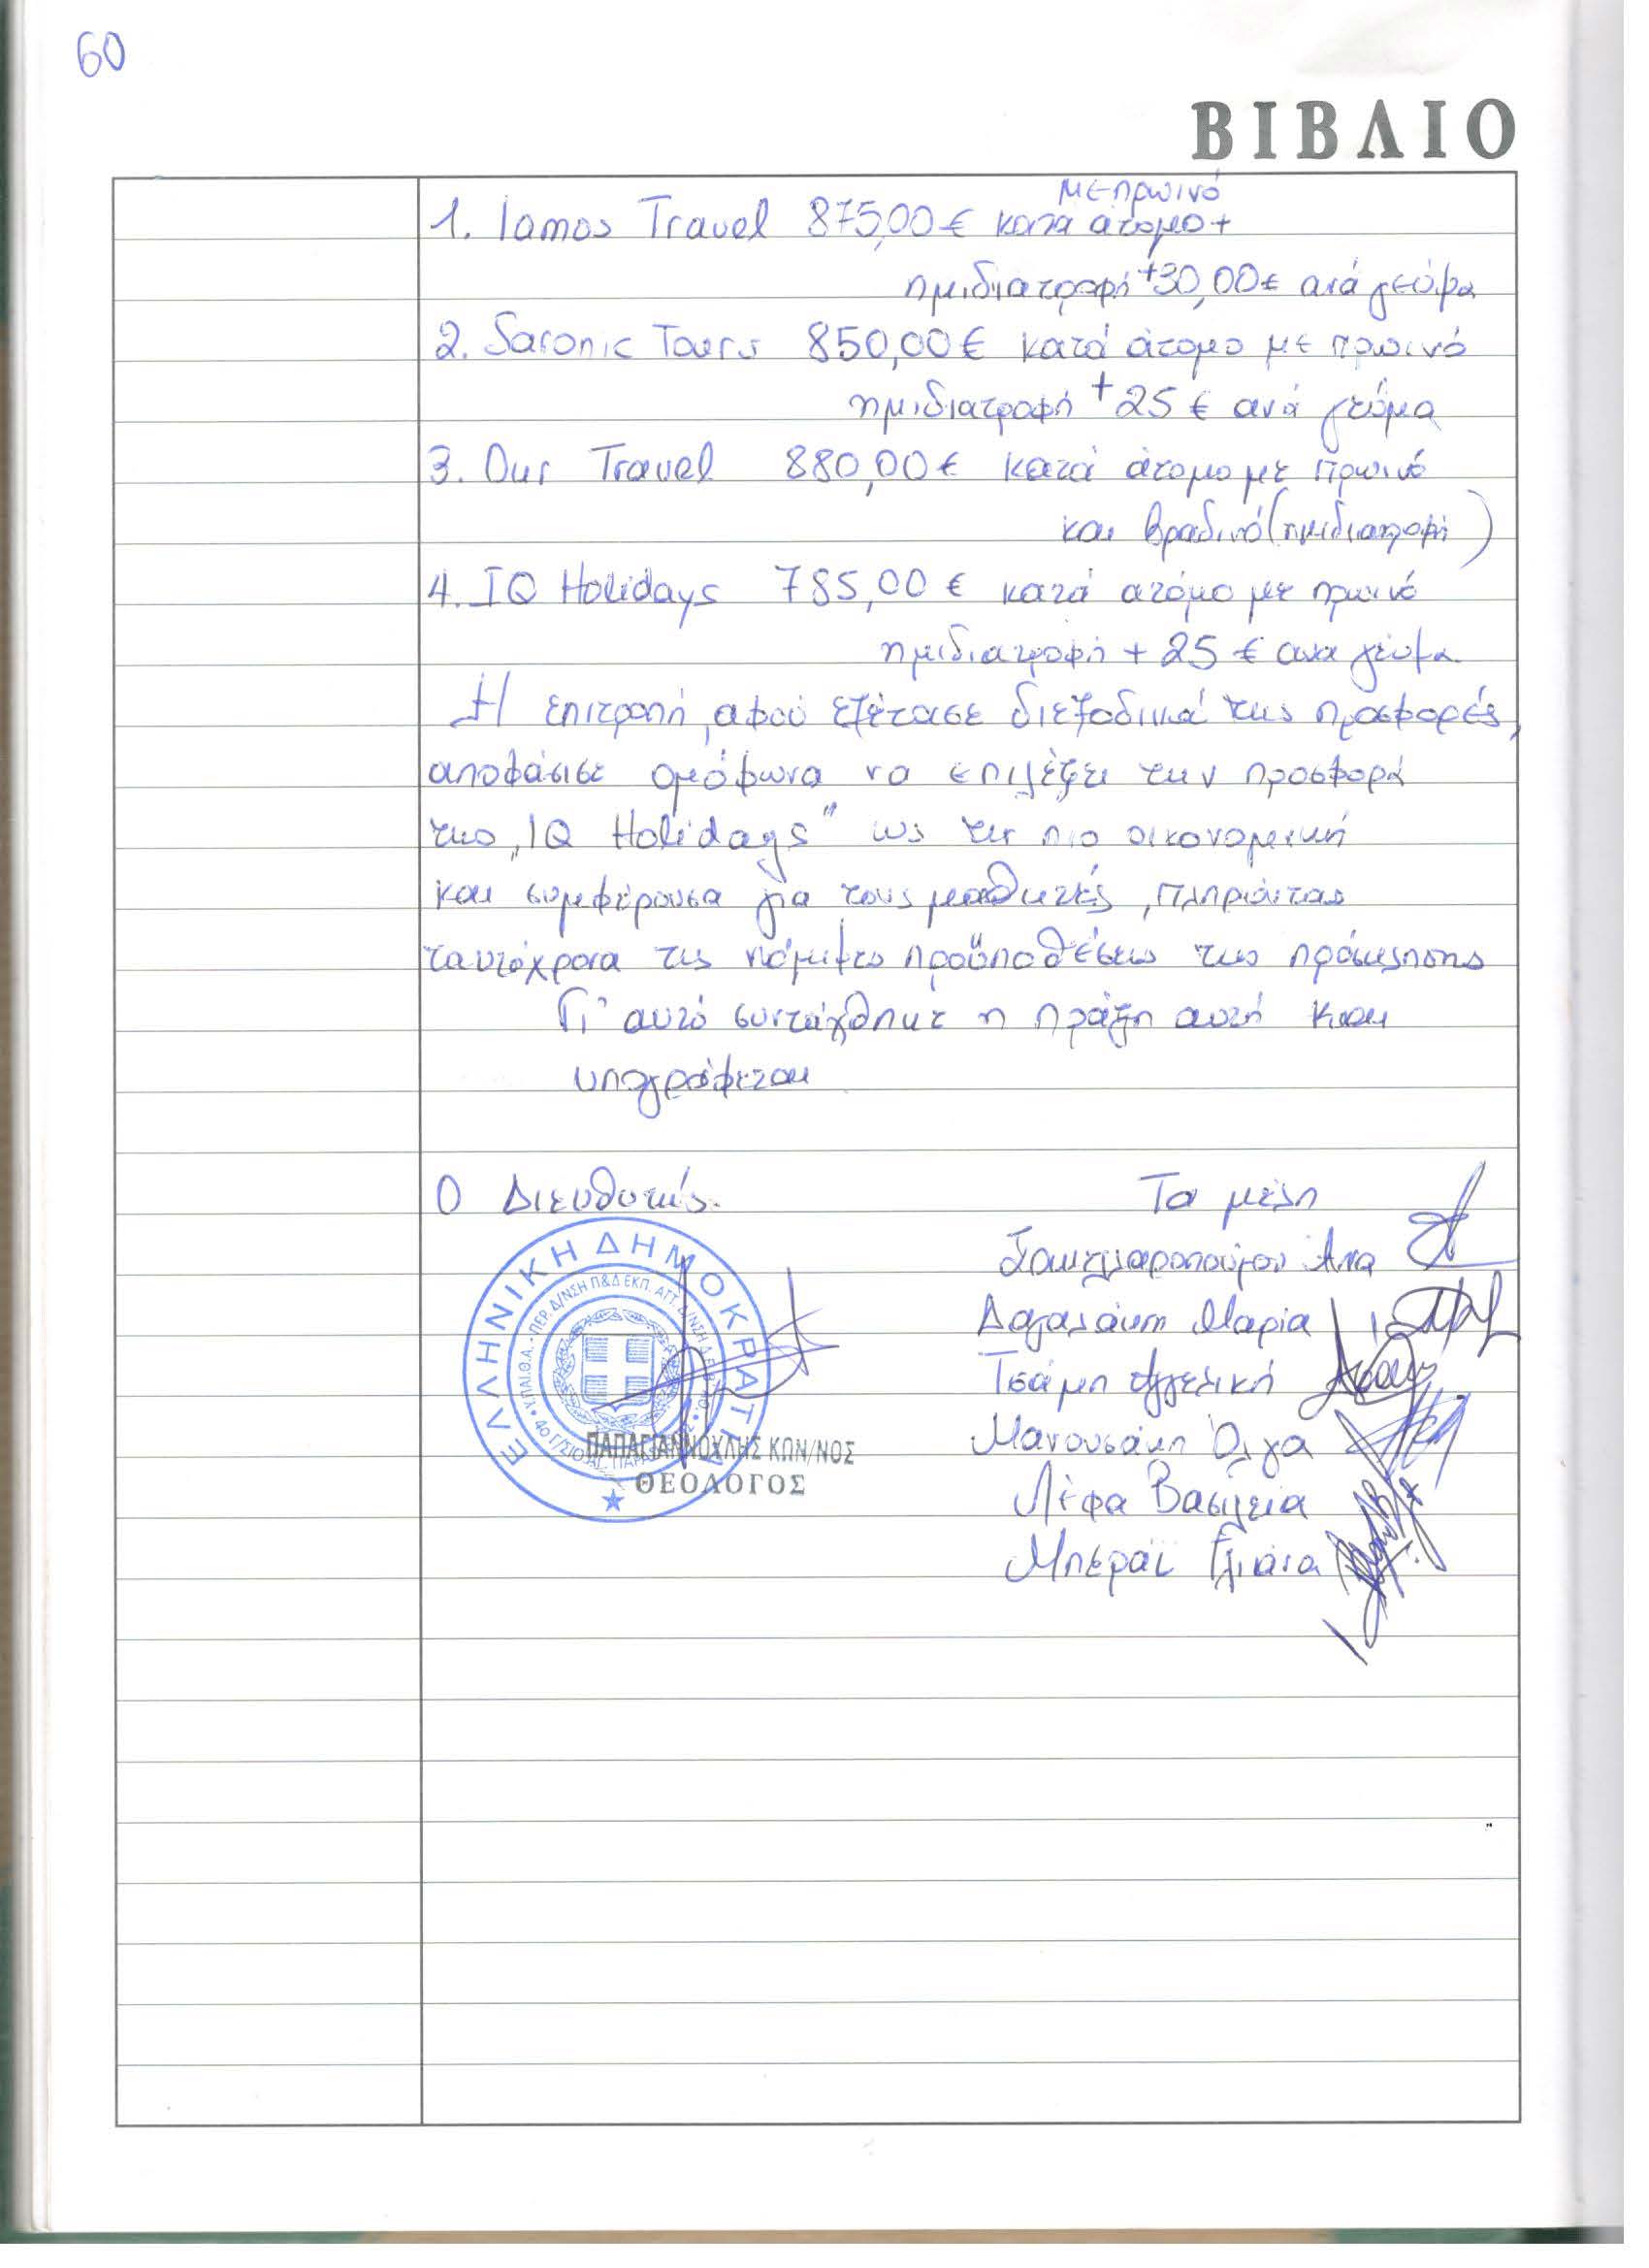 60
ΒΙΒΛΙΟ
με πρωινό
1. Iamos Travel 875,00€ κατα άτομο +
ημιδιατροφή +30,00€ ανά γεύμα
2. Saronic Tours 850,00€ κατά άτομο με πρωινό
ημιδιατροφή +25€ ανά γεύμα
3. Our Travel 880,00€ κατά άτομο με πρωινό
και βραδινό (ημιδιατροφή)
4. IQ Holidays 785,00€ κατά ατόμο με πρωινό
ημιδιατροφή + 25€ ανα γεύμα.
Η επιτροπή, αφού εξέτασε διεξοδικά τις προσφορές,
αποφάσισε ομόφωνα να επιλέξει την προσφορά
της „IQ Holidays" ως την πιο οικονομική
και συμφέρουσα για τους μαθητές, πληρώντας
ταυτόχρονα τις νόμιμες προϋποθέσεις της πρόσκλησης
Γι' αυτό συντάχθηκε η πράξη αυτή και
υπογράφεται
Ο Διευθυντής. Τα μέλη
Δαγαλάκη Μαρία
Τσάμη Αγγελική
Μανουσάκη Όλγα
Λέφα Βασιλεία
Μπεράϊ Ελιάνα
ΕΛΛΗΝΙΚΗ ΔΗΜΟΚΡΑΤΙΑ
ΠΑΠΑΓΙΑΝΝΟΥΛΗΣ ΚΩΝ/ΝΟΣ
ΘΕΟΛΟΓΟΣ